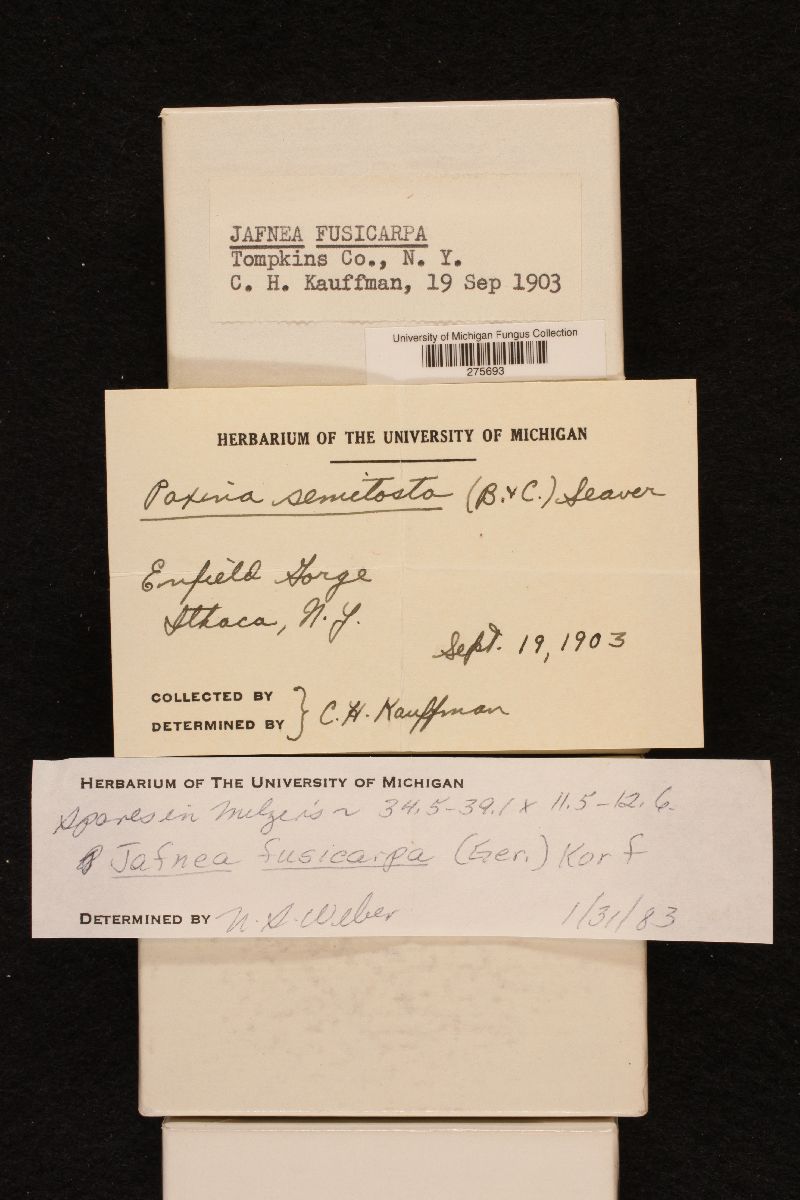 JAFNEA FUSICARPA
Tompkins Co., N. Y.
C. H. Kauffman, 19 Sep 1903
University of Michigan Fungus Collection
275693
HERBARIUM OF THE UNIVERSITY OF MICHIGAN
Paxina semitosta (B. & C.) Seaver
Enfield Gorge
Ithaca, N. Y.
Sept. 19, 1903
COLLECTED BY
DETERMINED BY } C. H. Kauffman
HERBARIUM OF THE UNIVERSITY OF MICHIGAN
Spores in Melzer's ~ 34.5-39.1 x 11.5-12.6
Jafnea fusicarpa (Ger.) Korf
DETERMINED BY N. S. Weber 1/31/83